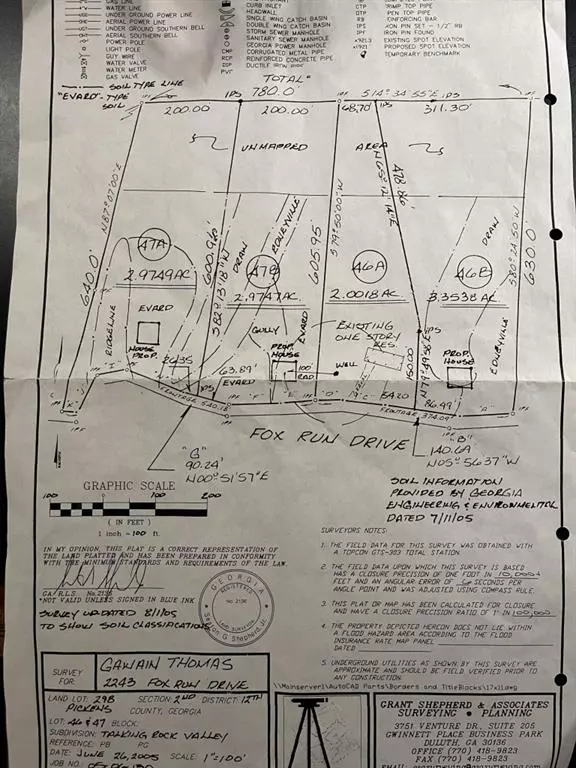 GAS LINE
UNDER GROUND POWER LINE
AERIAL POWER LINE
UNDER GROUND SOUTHERN BELL
AERIAL SOUTHERN BELL
POWER POLE
LIGHT POLE
GUY WIRE
WATER VALVE
WATER METER
GAS VALVE
CURB INLET
HEADWALL
SINGLE WING CATCH BASIN
DOUBLE WING CATCH BASIN
STORM SEWER MANHOLE
SANITARY SEWER MANHOLE
GEORGIA POWER MANHOLE
CMP CORRUGATED METAL PIPE
RCP REINFORCED CONCRETE PIPE
DIP DUCTILE IRON PIPE
PVC
CTP CRIMP TOP PIPE
OTP OPEN TOP PIPE
RB REINFORCING BAR
IPS IRON PIN SET - 1/2" RB
IPF IRON PIN FOUND
EXISTING SPOT ELEVATION
PROPOSED SPOT ELEVATION
TEMPORARY BENCHMARK
SOIL TYPE LINE
"EVARD"-TYPE SOIL
"TOTAL"
780.0'
S14°34'55"E
IPS
200.00
IPS
200.00'
68.70'
IPS
311.30'
UNMAPPED AREA
N87°07'00"E
640.0'
600.96'
S82°13'18"W
605.95
S79°50'00"W
478.86'
N65°12'14"E
S80°24'50"W
630.0'
DRAW
EDNEYVILLE
DRAW
EDNEYVILLE
47A
2.9749AC.
47B
2.9747AC.
46A
2.0018AC.
46B
3.3538AC.
RIDGELINE
EVARD
HOUSE PROP.
GULLY
EVARD
EXISTING ONE STORY RES.
PROP. HOUSE
100' RAD
WELL
63.89'
EVARD
IPS
150.00
N79°49'56"E
IPS
PROP. HOUSE
86.49'
IPF
FRONTAGE 540.18
FRONTAGE 374.09
FOX RUN DRIVE
"G"
90.24'
N00°51'57"E
"B"
140.69
N05°56'37"W
GRAPHIC SCALE
100 0 100 200
( IN FEET )
1 inch = 100 ft.
SOIL INFORMATION
PROVIDED BY GEORGIA
ENGINEERING & ENVIRONMENTAL
DATED 7/11/05
IN MY OPINION, THIS PLAT IS A CORRECT REPRESENTATION OF
THE LAND PLATTED AND HAS BEEN PREPARED IN CONFORMITY
WITH THE MINIMUM STANDARDS AND REQUIREMENTS OF THE LAW.
GA/R.L.S. No.2136
*NOT VALID UNLESS SIGNED IN BLUE INK
SURVEY UPDATED 8/1/05
TO SHOW SOIL CLASSIFICATIONS
GEORGIA
REGISTERED
No. 2136
LAND SURVEYOR
G. Shepherd, Jr.
SURVEYORS NOTES:
1. THE FIELD DATA FOR THIS SURVEY WAS OBTAINED WITH
A TOPCON GTS-303 TOTAL STATION.
2. THE FIELD DATA UPON WHICH THIS SURVEY IS BASED
HAS A CLOSURE PRECISION OF ONE FOOT IN 10,000+
FEET AND AN ANGULAR ERROR OF SECONDS PER
ANGLE POINT AND WAS ADJUSTED USING COMPASS RULE.
3. THIS PLAT OR MAP HAS BEEN CALCULATED FOR CLOSURE
AND HAVE A CLOSURE PRECISION RATIO OF 1' IN 100,000
4. THE PROPERTY DEPICTED HEREON DOES NOT LIE WITHIN
A FLOOD HAZARD AREA ACCORDING TO THE FLOOD
INSURANCE RATE MAP PANEL
DATED
5. UNDERGROUND UTILITIES AS SHOWN BY THIS SURVEY ARE
APPROXIMATE AND SHOULD BE FIELD VERIFIED PRIOR TO
ANY CONSTRUCTION.
\\Mainserver1\AutoCAD Parts\Borders and TitleBlocks\17x11.dwg
SURVEY FOR: GAWAIN THOMAS
2243 FOX RUN DRIVE
LAND LOT: 298 SECTION: 2ND DISTRICT: 12TH
PICKENS COUNTY, GEORGIA
LOT: 46 & 47 BLOCK:
SUBDIVISION: TALKING ROCK VALLEY
REFERENCE: PB PG
DATE: JUNE 26, 2005 SCALE: 1"=100'
JOB NO.
GRANT SHEPHERD & ASSOCIATES
SURVEYING • PLANNING
3751 VENTURE DR., SUITE 205
GWINNETT PLACE BUSINESS PARK
DULUTH, GA 30136
OFFICE (770) 418-9823
FAX (770) 418-9823